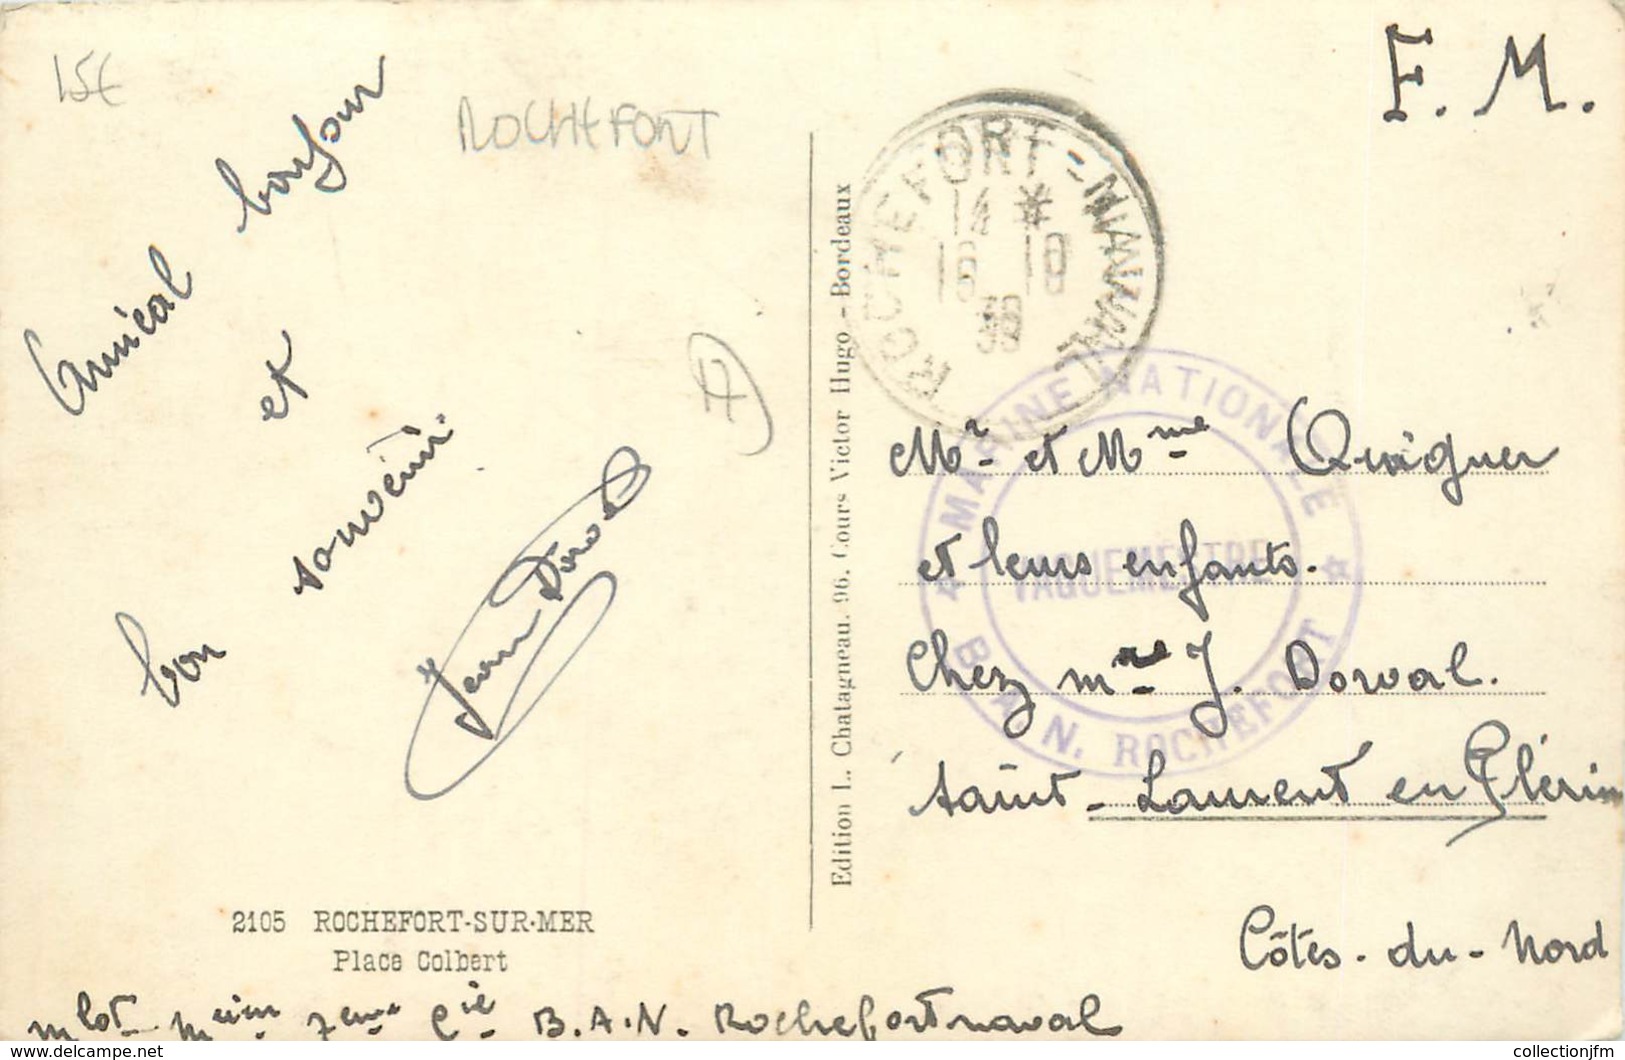 15€
ROCHEFORT
F. M.
Amical bonjour
et
bon souvenir.
Jean Dorval
2105 ROCHEFORT-SUR-MER
Place Colbert
mlot mcien 7eme Cie B.A.N. Rochefort naval
Edition L. Chatagneau. 96. Cours Victor Hugo - Bordeaux
ROCHEFORT-NAVAL
14 *
16 10
39
MARINE NATIONALE
VAGUEMESTRE
B.A.N. ROCHEFORT
Mr et Mme Quiguer
et leurs enfants.
Chez me J. Dorval.
Saint-Laurent en Plérin
Côtes-du-Nord
collectionjfm